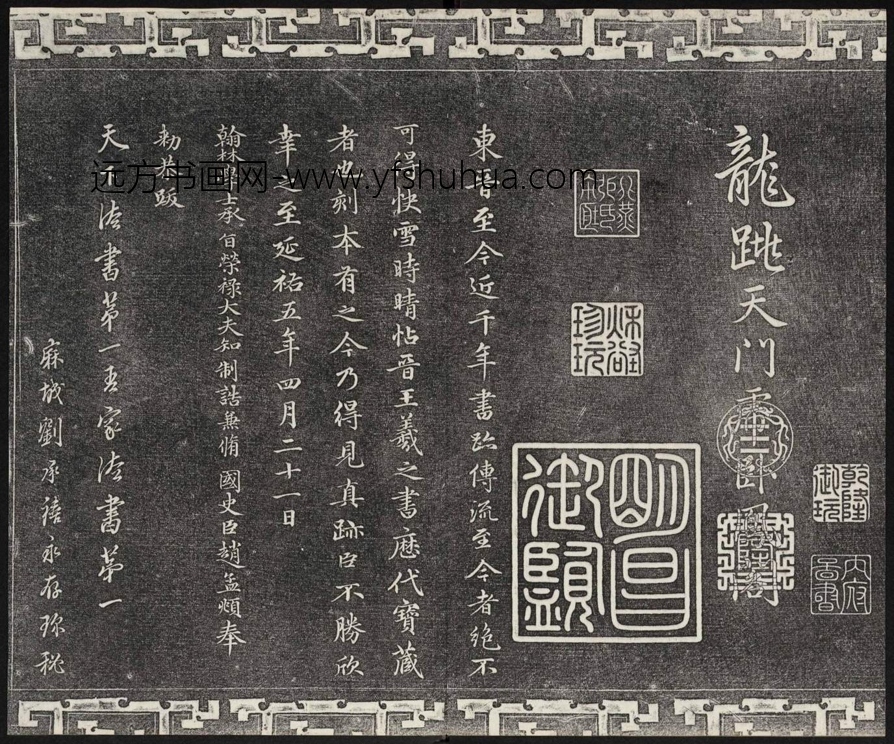 龍跳天門虎臥鳳閣
乾隆御玩
明昌御覽
東晉至今近千年書跡傳流至今者絕不
可得快雪時晴帖晉王羲之書歷代寶藏
者也刻本有之今乃得見真跡臣不勝欣
幸之至延祐五年四月二十一日
翰林學士承旨榮祿大夫知制誥兼脩國史臣趙孟頫奉
勑恭跋
天下法書第一吾家法書第一
麻城劉承禧永存珎秘
远方书画网-www.yfshuhua.com